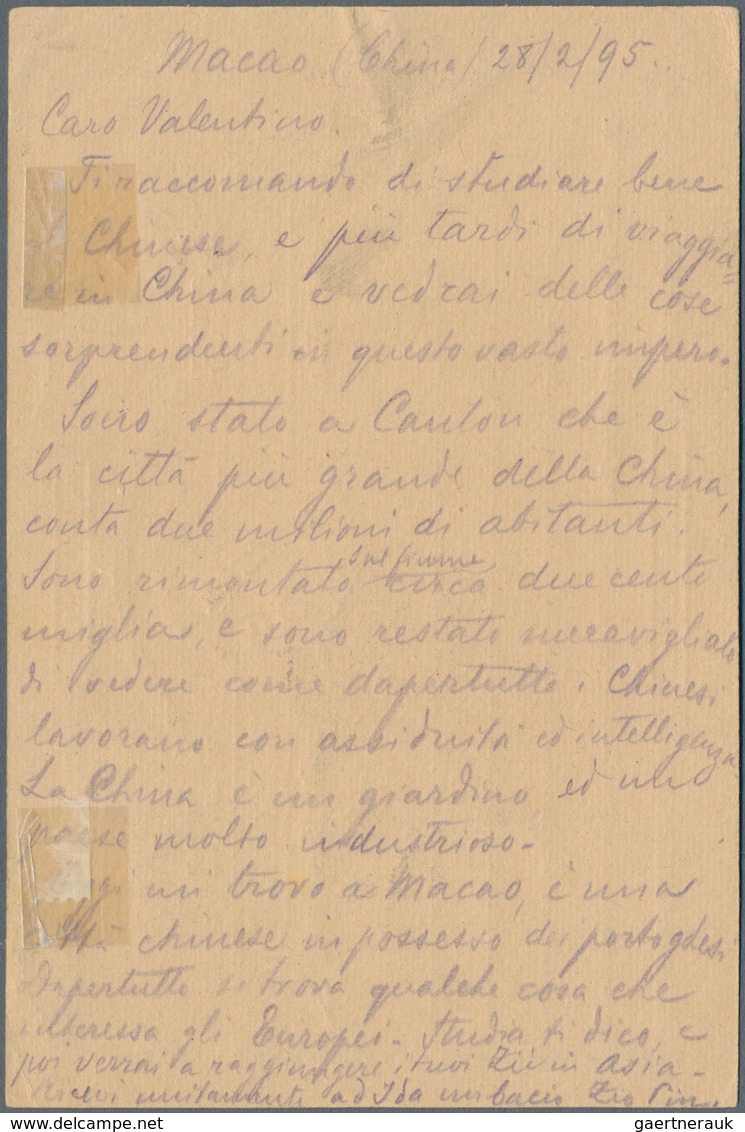 Macao (China) 28/2/95.
Caro Valentino.
Ti raccomando di studiare bene
Chinese, e più tardi di viaggia=
re in China e vedrai delle cose
sorprendenti in questo vasto impero.
Sono stato a Canton che è
la città più grande della China,
conta due milioni di abitanti.
sul fiume
Sono rimontato circa duecento
miglia, e sono restato meravigliato
di vedere come dapertutto i Chinesi
lavorano con assiduità ed intelligenza
La China è un giardino, ed un
paese molto industrioso.
mi trovo a Macao, è una
città chinese in possesso dei portoghesi
Dapertutto si trova qualche cosa che
interessa gli Europei. Studia ti dico, e
poi verrai a raggiungere i tuoi Zii in Asia.
Ricevi unitamente ad Ida un bacio Zio
gaertnerauk